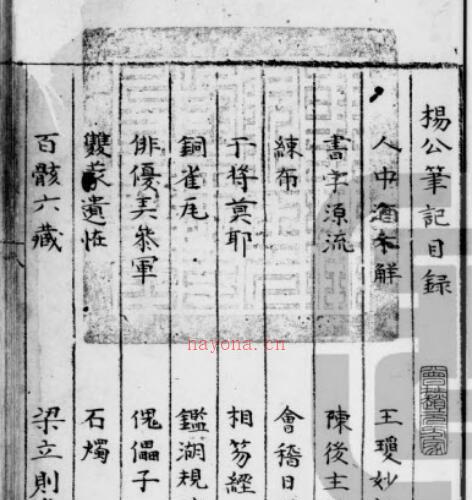 楊公筆記目録
人中酒未解 王瓊妙
書字源流 陳後主
練布 會稽日
干將莫耶 相笏經
銅雀瓦 鑑湖規
俳優弄叅軍 傀儡子
雙遺恠 石燭
百骸六藏 梁立則
hayona.cn